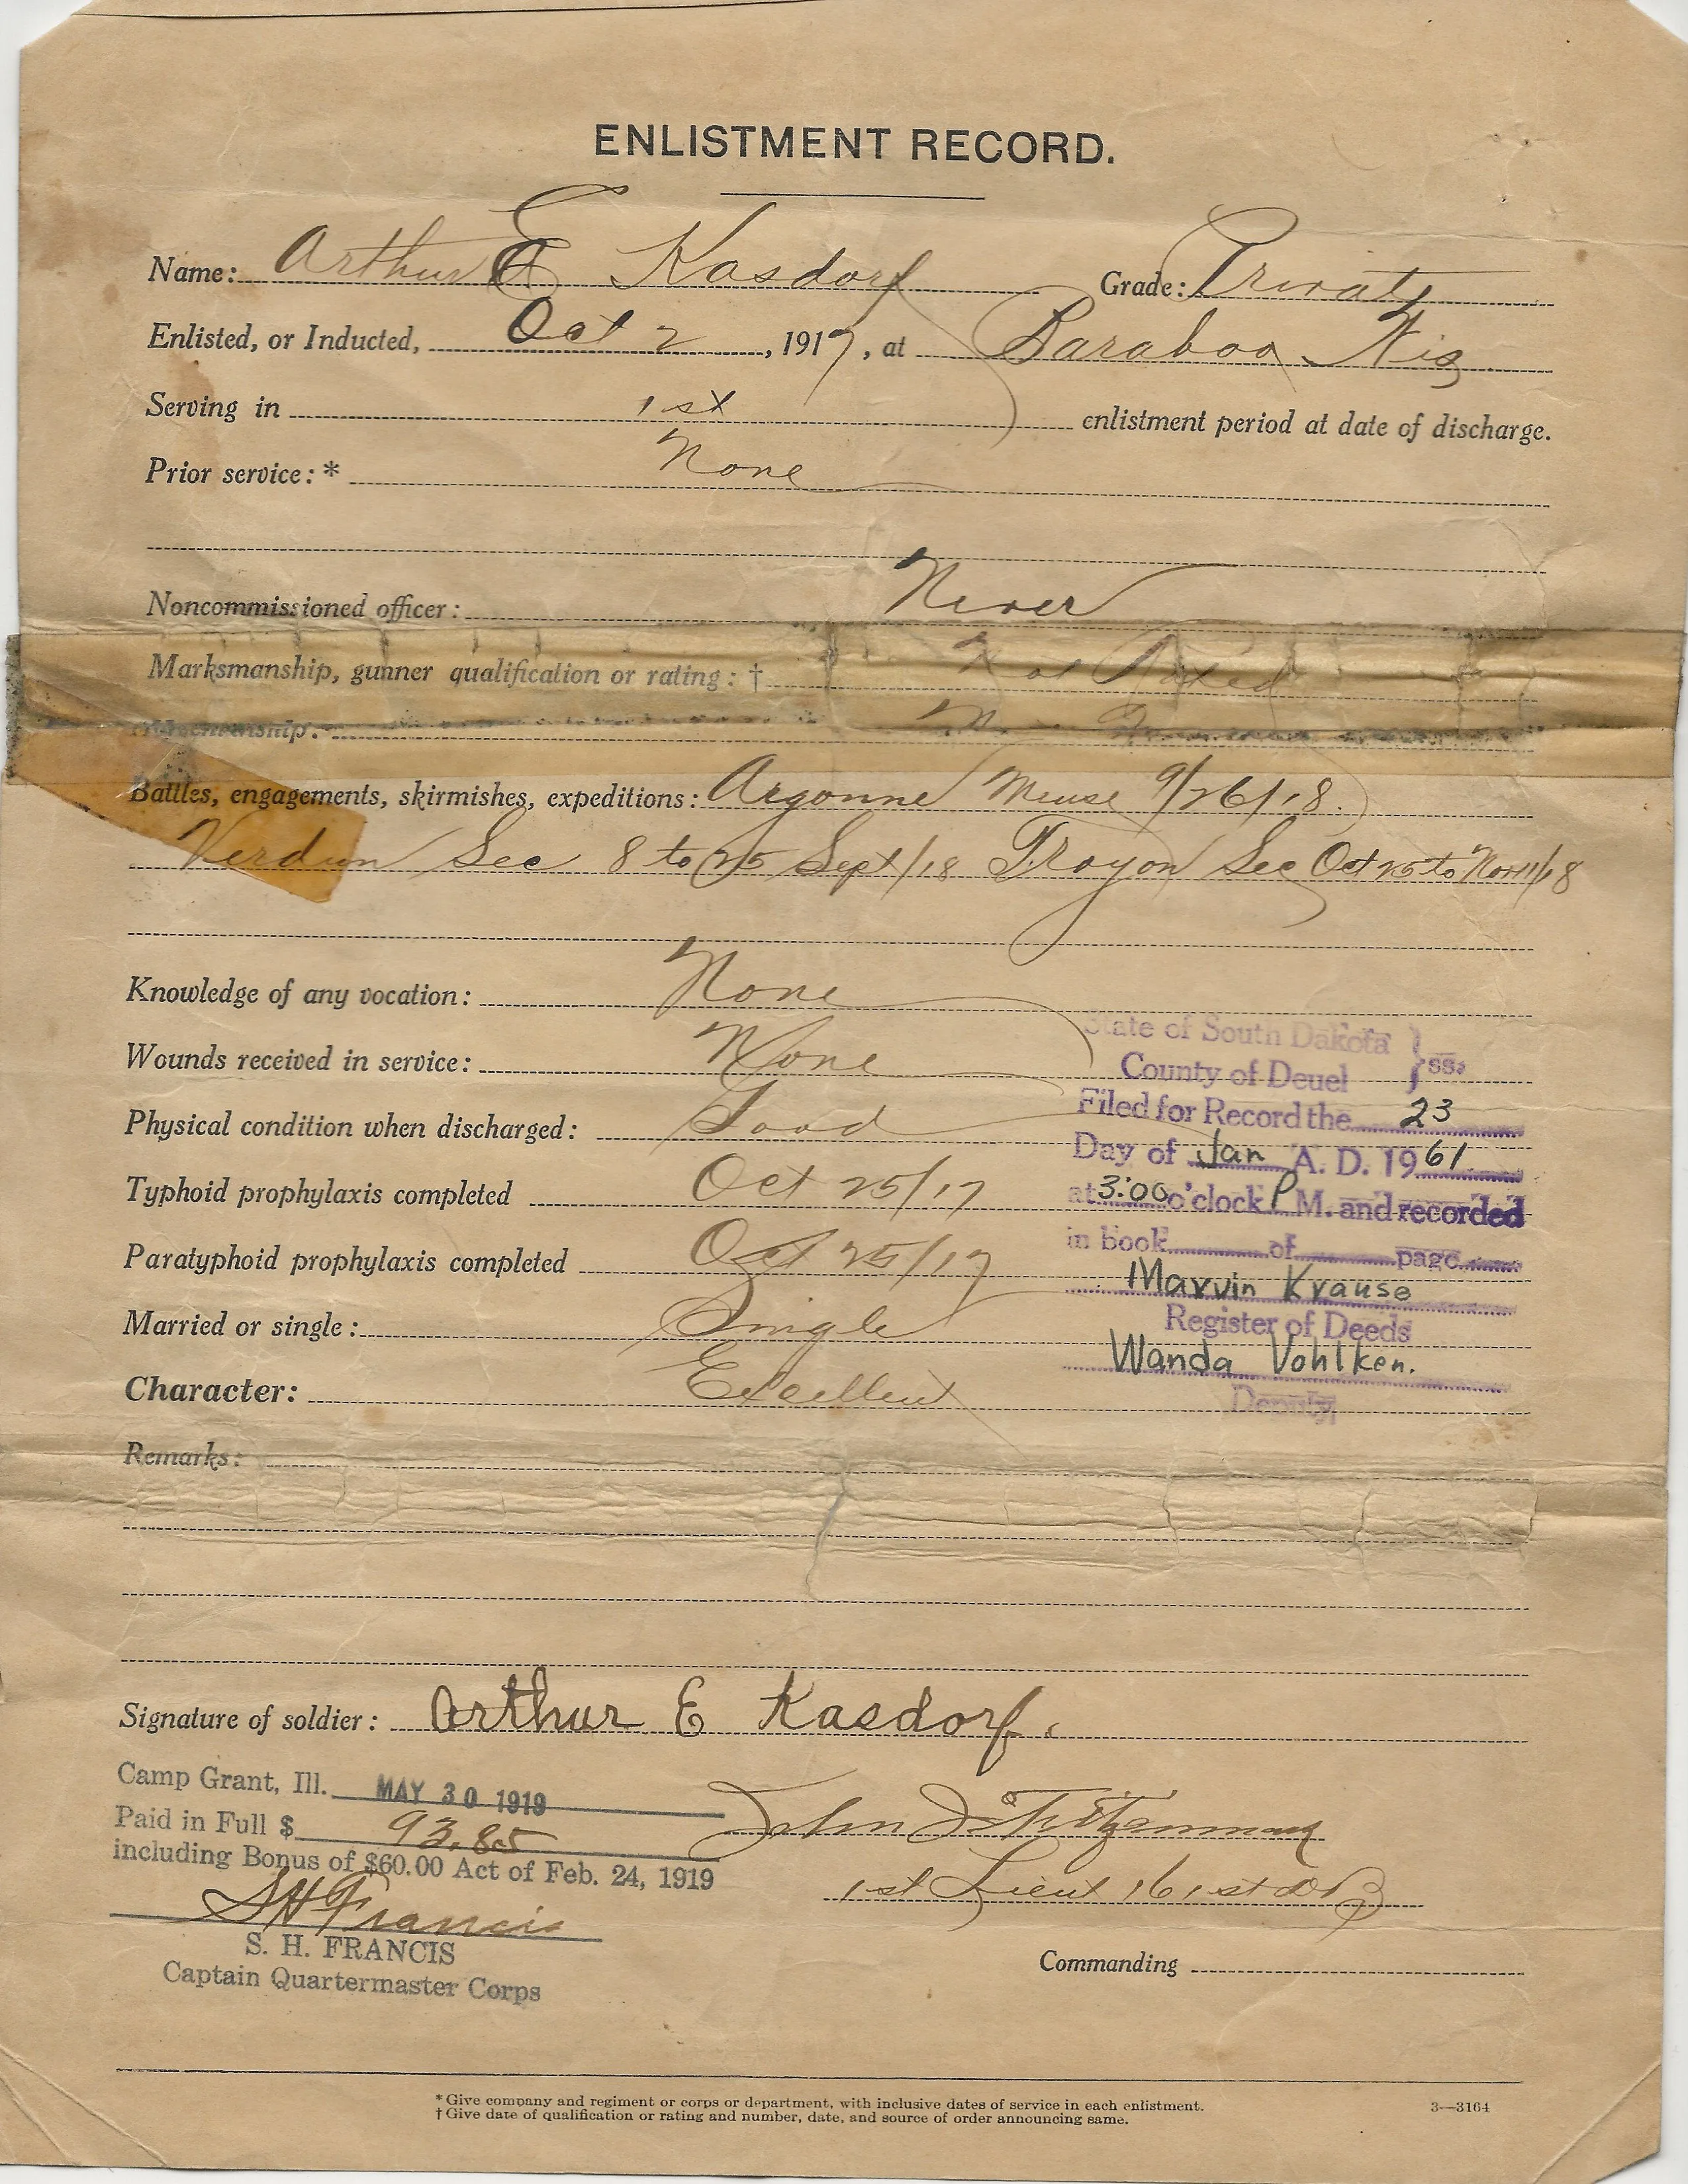 ENLISTMENT RECORD.
Name: Arthur E Kasdorf Grade: Private
Enlisted, or Inducted, Oct 2, 1917, at Baraboo Wis
Serving in 1st enlistment period at date of discharge.
Prior service:* None
Noncommissioned officer: Never
Marksmanship, gunner qualification or rating:† Not Rated
Horsemanship:
Battles, engagements, skirmishes, expeditions: Argonne Meuse 9/26/18.
Verdun Sec 8 to 25 Sept/18 Troyon Sec Oct 25 to Nov 11/18
Knowledge of any vocation: None
Wounds received in service: None
Physical condition when discharged: Good
Typhoid prophylaxis completed Oct 25/17
Paratyphoid prophylaxis completed Oct 25/17
Married or single: Single
Character: Excellent
Remarks:
State of South Dakota } ss.
County of Deuel
Filed for Record the 23
Day of Jan A. D. 1961
at 3:00 o'clock P M. and recorded
in book of page
Marvin Krause
Register of Deeds
Wanda Vohlken.
Deputy
Signature of soldier: Arthur E Kasdorf.
Camp Grant, Ill. MAY 30 1919
Paid in Full $ 93.85
including Bonus of $60.00 Act of Feb. 24, 1919
S H Francis
S. H. FRANCIS
Captain Quartermaster Corps
John
1st Lieut 161st DB
Commanding
* Give company and regiment or corps or department, with inclusive dates of service in each enlistment.
† Give date of qualification or rating and number, date, and source of order announcing same.
3—3164